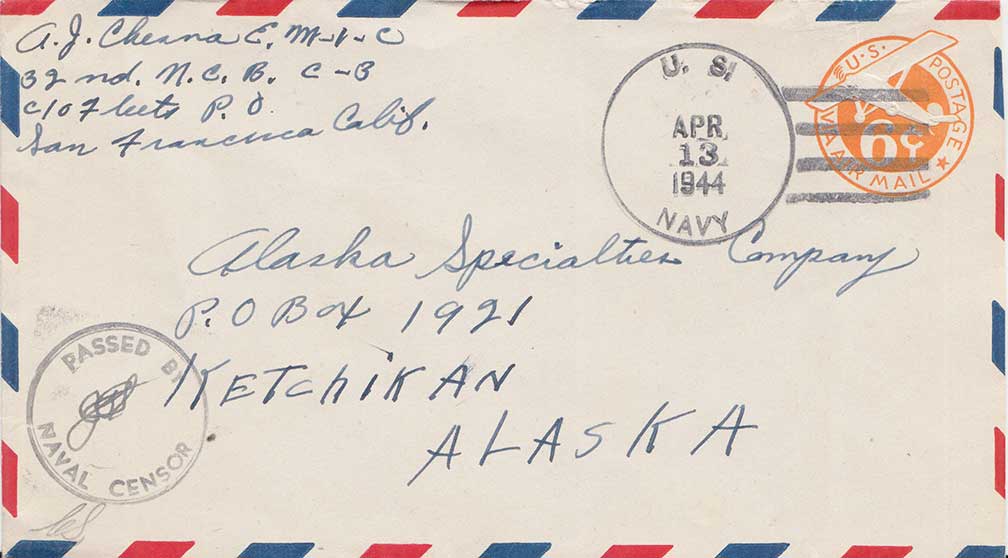 A. J. Chesna E. M-1-C
32nd. N. C. B. C-3
c/o Fleets P. O.
San Francisca Calif.
U. S.
APR.
13
1944
NAVY
U.S. POSTAGE
6¢
VIA AIR MAIL
Alaska Specialties Company
P. O Box 1921
KETchiKAN
ALASKA
PASSED BY
NAVAL CENSOR